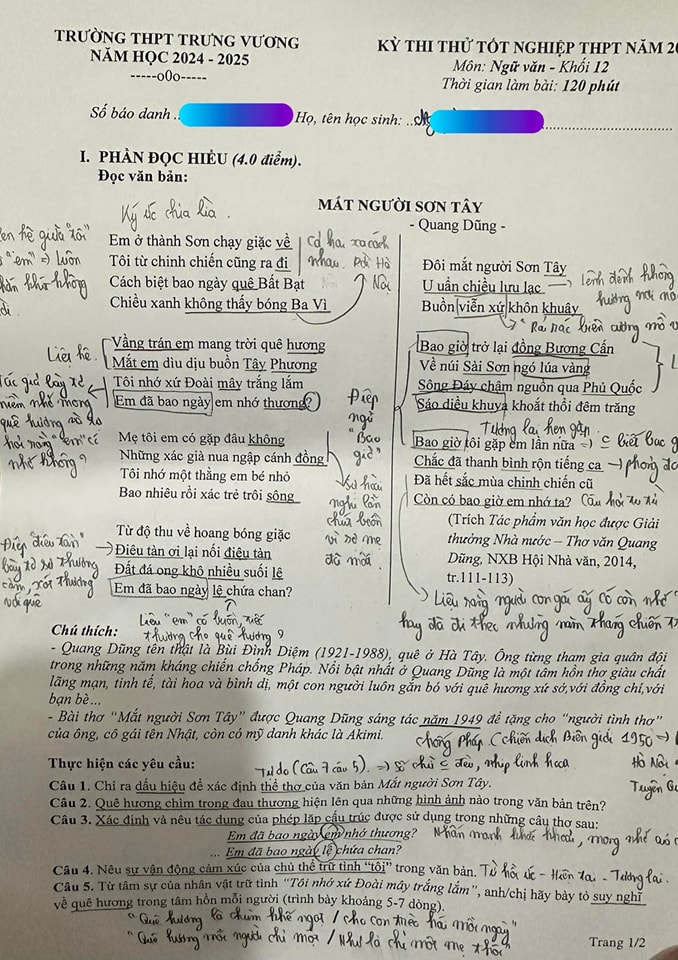 TRƯỜNG THPT TRƯNG VƯƠNG
NĂM HỌC 2024 - 2025
-----o0o-----
KỲ THI THỬ TỐT NGHIỆP THPT NĂM 20
Môn: Ngữ văn - Khối 12
Thời gian làm bài: 120 phút
Số báo danh
Họ, tên học sinh:
I. PHẦN ĐỌC HIỂU (4.0 điểm).
Đọc văn bản:
MẮT NGƯỜI SƠN TÂY
- Quang Dũng -
Ký ức chia lìa.
Em ở thành Sơn chạy giặc về
Tôi từ chinh chiến cũng ra đi
Cách biệt bao ngày quê Bất Bạt
Chiều xanh không thấy bóng Ba Vì
Cả hai xa cách
nhau. Rời Hà
Nội
Vầng trán em mang trời quê hương
Mắt em dìu dịu buồn Tây Phương
Tôi nhớ xứ Đoài mây trắng lắm
Em đã bao ngày em nhớ thương?
Liên hệ.
Tác giả bày tỏ
niềm nhớ mong
quê hương
hỏi rằng "em" có
nhớ không?
Mẹ tôi em có gặp đâu không
Những xác già nua ngập cánh đồng
Tôi nhớ một thằng em bé nhỏ
Bao nhiêu rồi xác trẻ trôi sông
Điệp
ngữ
"Bao
giờ"
Từ độ thu về hoang bóng giặc
Điêu tàn ơi lại nối điêu tàn
Đất đá ong khô nhiều suối lệ
Em đã bao ngày lệ chứa chan?
Điệp "điêu tàn"
bày tỏ sự thương
cảm, xót thương
với quê
Liệu "em" có buồn, tiếc
thương cho quê hương?
Đôi mắt người Sơn Tây
U uẩn chiều lưu lạc
Buồn viễn xứ khôn khuây
lênh đênh không
hướng nơi
Bao giờ trở lại đồng Bương Cấn
Về núi Sài Sơn ngó lúa vàng
Sông Đáy chậm nguồn qua Phủ Quốc
Sáo diều khuya khoắt thổi đêm trăng
Tương lai hẹn gặp.
Bao giờ tôi gặp em lần nữa
Chắc đã thanh bình rộn tiếng ca
Đã hết sắc mùa chinh chiến cũ
Còn có bao giờ em nhớ ta?
Câu hỏi tu từ
(Trích Tác phẩm văn học được Giải
thưởng Nhà nước – Thơ văn Quang
Dũng, NXB Hội Nhà văn, 2014,
tr.111-113)
Liệu rằng người con gái ấy có còn nhớ
hay đã đi theo những năm tháng chiến
Chú thích:
- Quang Dũng tên thật là Bùi Đình Diệm (1921-1988), quê ở Hà Tây. Ông từng tham gia quân đội
trong những năm kháng chiến chống Pháp. Nổi bật nhất ở Quang Dũng là một tâm hồn thơ giàu chất
lãng mạn, tinh tế, tài hoa và bình dị, một con người luôn gắn bó với quê hương xứ sở, với đồng chí, với
bạn bè…
- Bài thơ “Mắt người Sơn Tây” được Quang Dũng sáng tác năm 1949 để tặng cho “người tình thơ”
của ông, cô gái tên Nhật, còn có mỹ danh khác là Akimi.
chống Pháp. (chiến dịch Biên giới 1950 =>
Hà Nội
Thực hiện các yêu cầu:
Tự do (Câu 7 câu 5). => Số chữ
Câu 1. Chỉ ra dấu hiệu để xác định thể thơ của văn bản Mắt người Sơn Tây.
Câu 2. Quê hương chìm trong đau thương hiện lên qua những hình ảnh nào trong văn bản trên?
Câu 3. Xác định và nêu tác dụng của phép lặp cấu trúc được sử dụng trong những câu thơ sau:
Em đã bao ngày em nhớ thương?
... Em đã bao ngày lệ chứa chan?
Câu 4. Nêu sự vận động cảm xúc của chủ thể trữ tình “tôi” trong văn bản.
Từ hồi ức - Hiện tại - Tương lai.
Câu 5. Từ tâm sự của nhân vật trữ tình “Tôi nhớ xứ Đoài mây trắng lắm”, anh/chị hãy bày tỏ suy nghĩ
về quê hương trong tâm hồn mỗi người (trình bày khoảng 5-7 dòng).
"Quê hương là chùm khế ngọt / cho con trèo hái mỗi ngày"
"Quê hương mỗi người chỉ một / Như là chỉ một mẹ thôi"
Trang 1/2